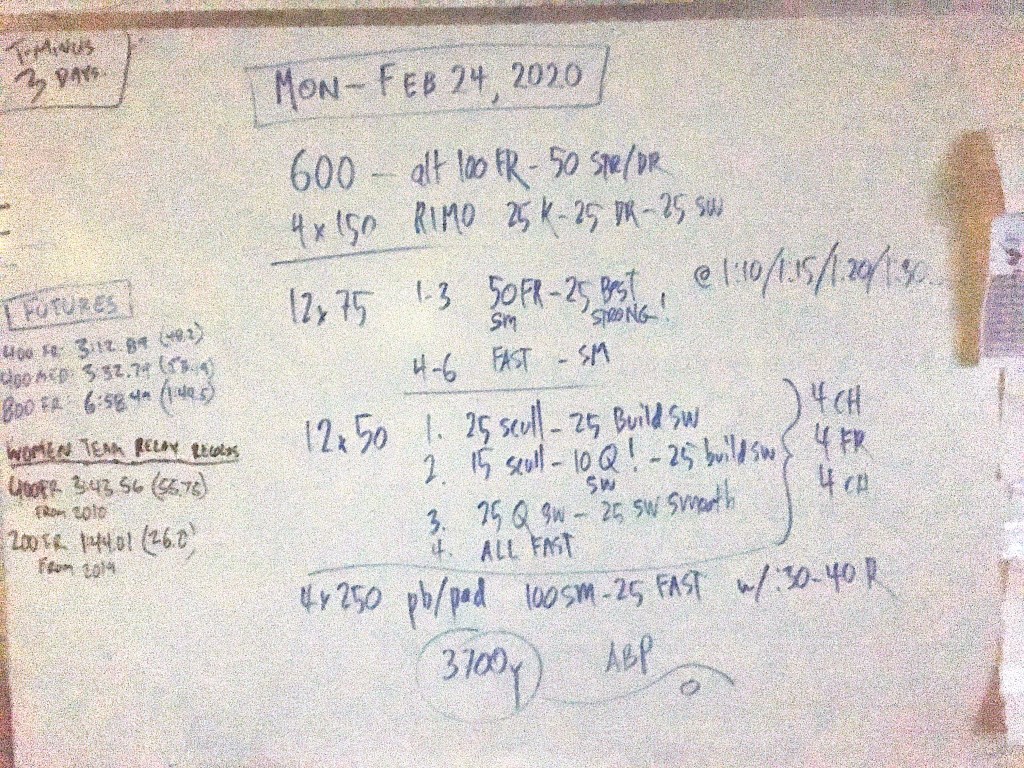 T-MINUS
3 DAYS.
MON - FEB 24, 2020
600 - alt 100 FR - 50 STR/DR
4 x 150 RIMO 25 K - 25 DR - 25 SW
12 x 75 1-3 50 FR - 25 BEST @ 1:10/1:15/1:20/1:30
SM STRONG!
4-6 FAST - SM
12 x 50 1. 25 scull - 25 Build SW
2. 15 scull - 10 Q! - 25 build SW
SW
3. 25 Q SW - 25 SW smooth
4. ALL FAST
4 CH
4 FR
4 CH
4 x 250 pb/pad 100 SM - 25 FAST w/ :30-40 R
3700y ABP
FUTURES
400 FR: 3:12.89 (48.2)
400 MED: 3:32.79
800 FR: 6:58 (1:44.5)
WOMEN TEAM RELAY RECORDS
400 FR 3:43.56 (55.75)
FROM 2010
200 FR 1:44.01 (26.0)
FROM 2019